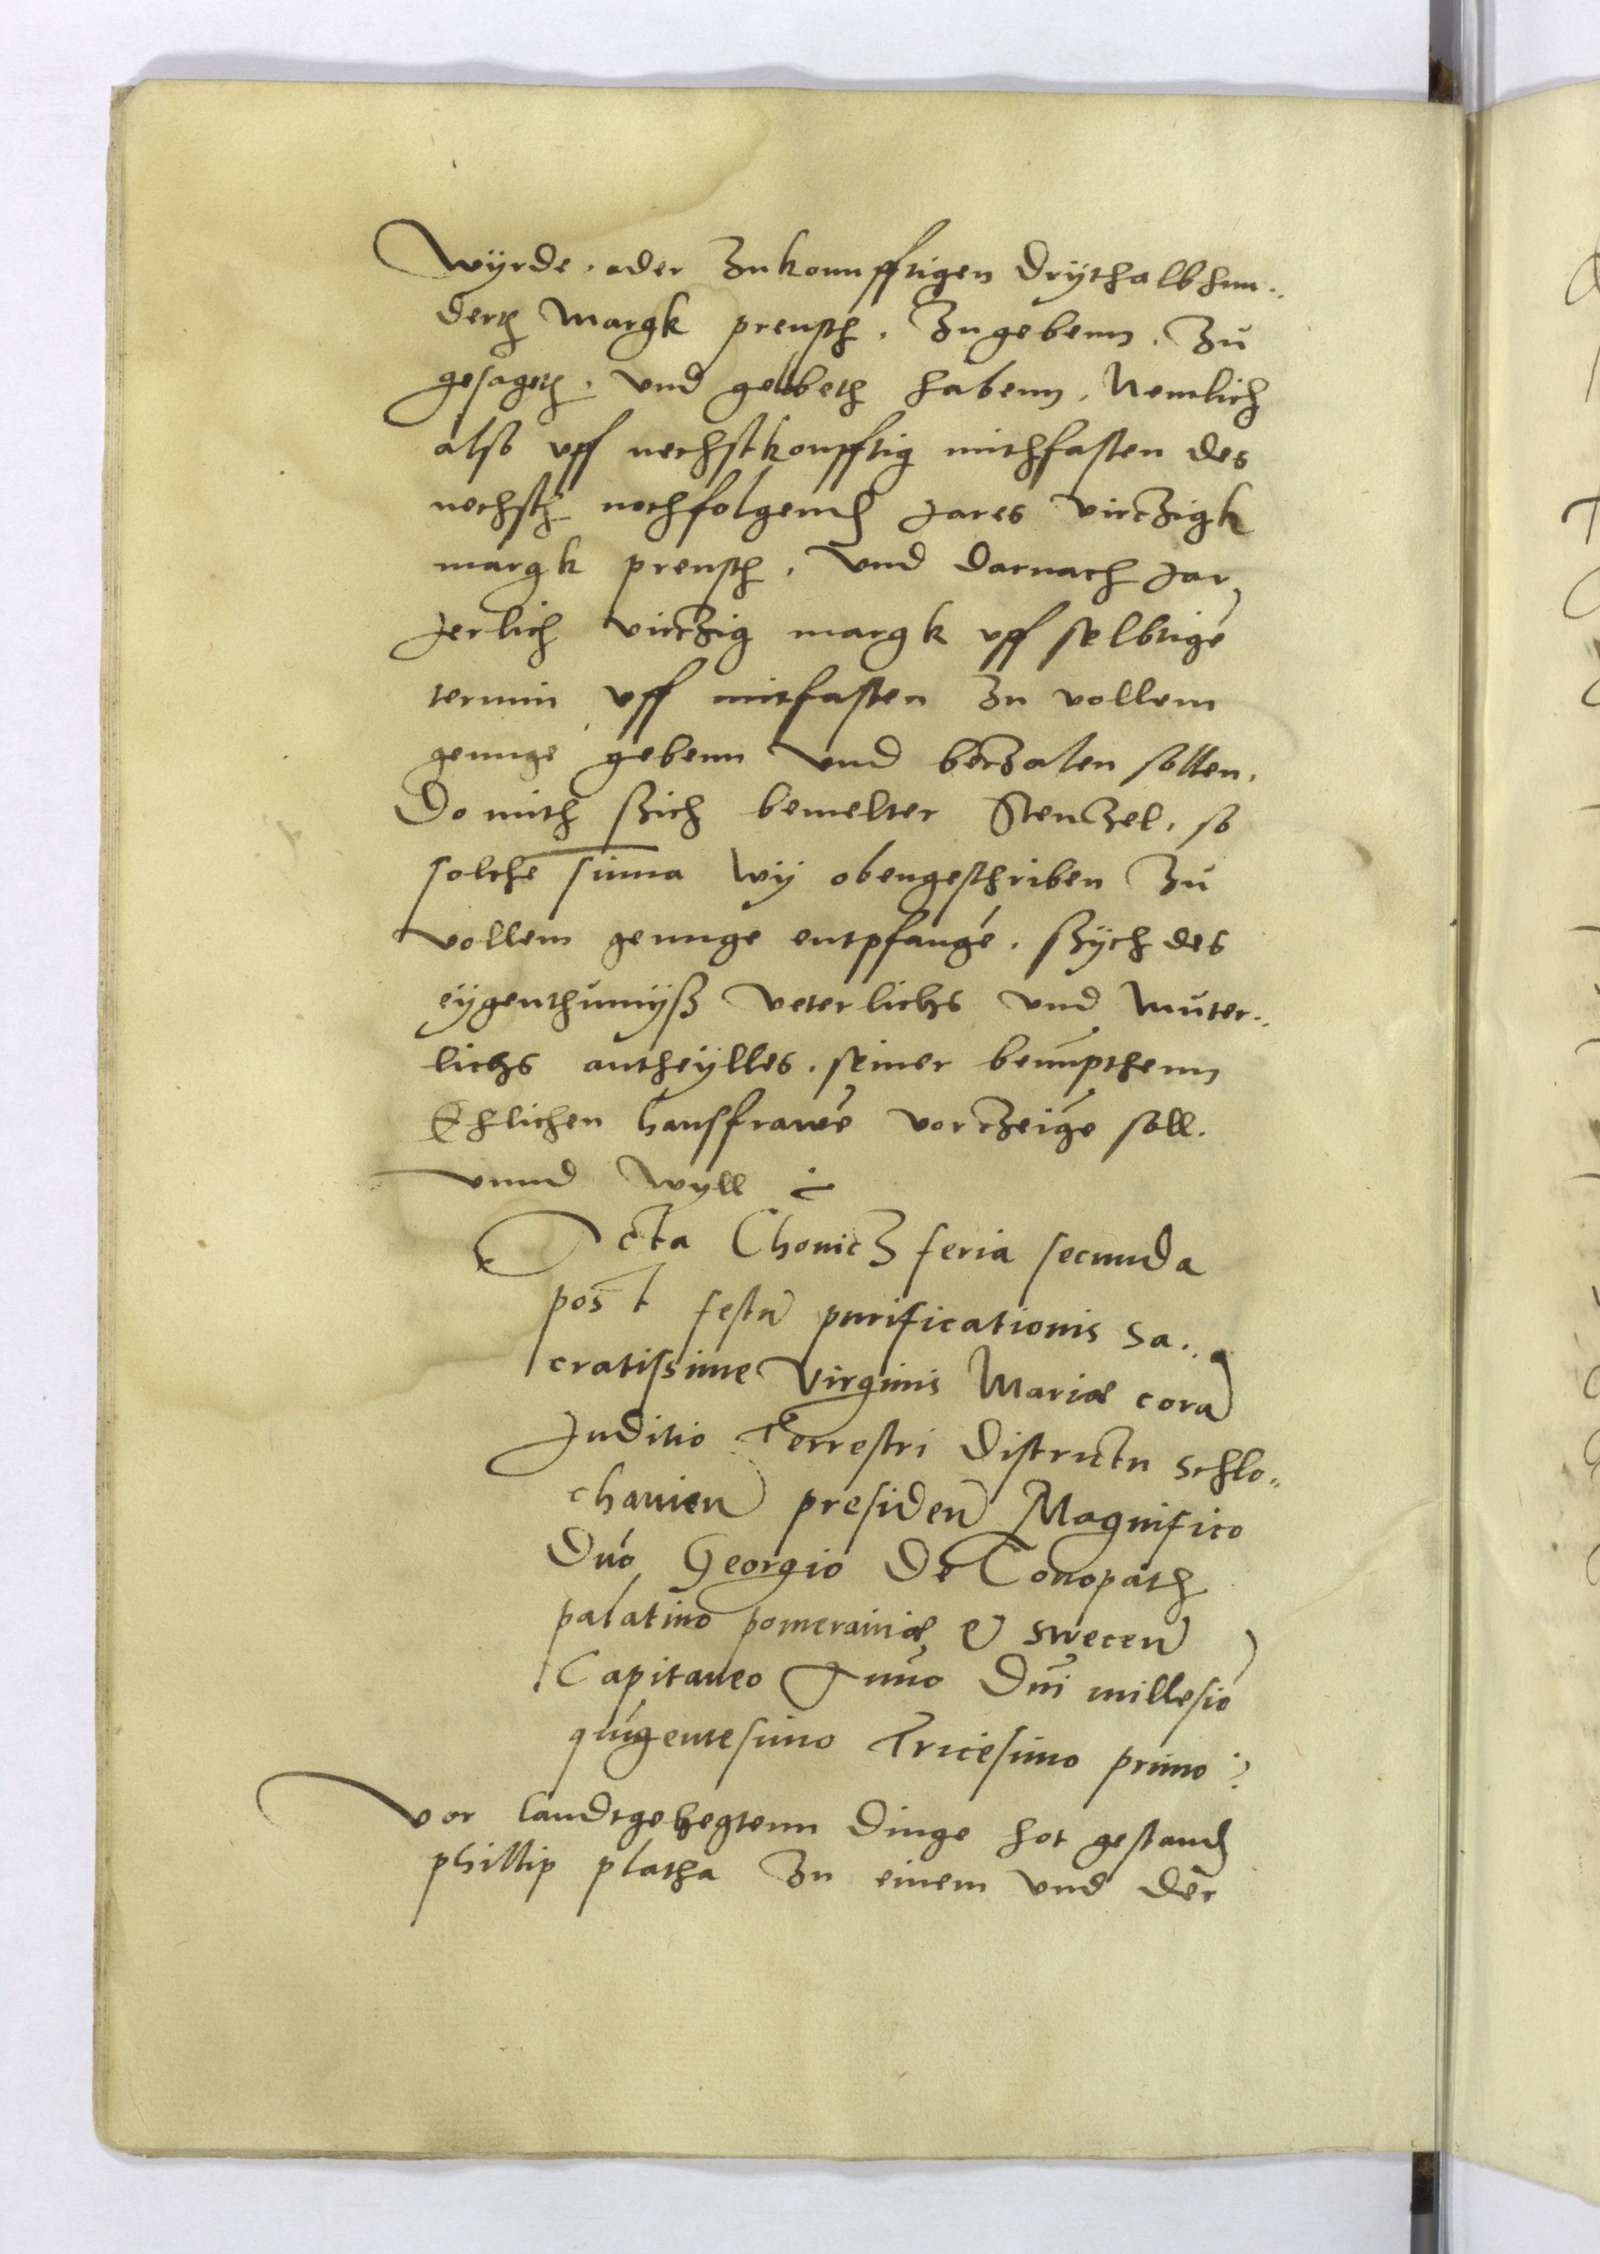 Wÿrde, oder zukounfftigen drÿthalbhun..
derth margk preusch, zugebenn, zu
gesageth, und gelobeth habenn, Nemlich
also uff nechstkonfftig mithfasten des
nechsth nochfolgend Jares virczigk
margk preusch, und darnach Jar
Jerlich virczig margk uff selbtige
termin uff mitfasten zu vollem
genuge gebenn und beczalen sollen,
Do mith szich bemelter Stenczel, so
solche suma wÿ obengeschriben zu
vollem genuge entpfange, szÿch des
eÿgenthumÿsz veterlichs und muter..
lichs antheÿlles, seiner benumpthenn
Ehlichen hausfrawe vorczeige soll.
unnd wyll
Acta Chonicz feria secunda
post festu purificationis sa..
cratissime Virginis Mariæ cora
Juditio Terrestri districtu schlo..
chauien presiden Magnifico
Dno Georgio De Conopath
palatino pomeraniæ & swecen
Capitaneo Anno Dni millesio
quigentesimo Tricesimo primo
Vor landtgehegtenn dinge hot gestand
phillip platha zu einem und der